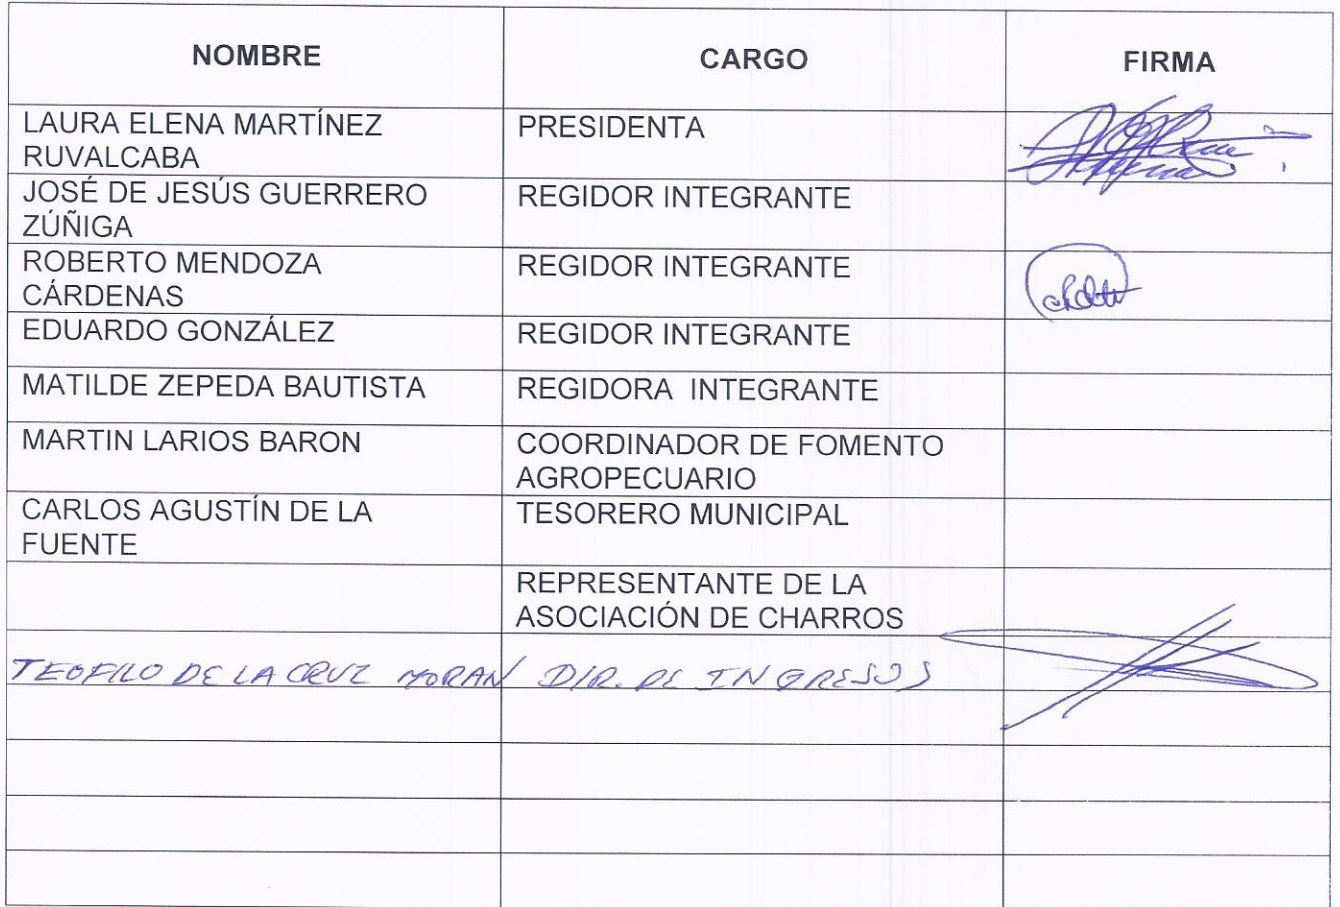 NOMBRE CARGO FIRMA
LAURA ELENA MARTÍNEZ PRESIDENTA
RUVALCABA
JOSÉ DE JESÚS GUERRERO REGIDOR INTEGRANTE
ZÚÑIGA
ROBERTO MENDOZA REGIDOR INTEGRANTE
CÁRDENAS
EDUARDO GONZÁLEZ REGIDOR INTEGRANTE
MATILDE ZEPEDA BAUTISTA REGIDORA INTEGRANTE
MARTIN LARIOS BARON COORDINADOR DE FOMENTO
AGROPECUARIO
CARLOS AGUSTÍN DE LA TESORERO MUNICIPAL
FUENTE
REPRESENTANTE DE LA
ASOCIACIÓN DE CHARROS
TEOFILO DE LA CRUZ MORAN DIR. DE INGRESOS